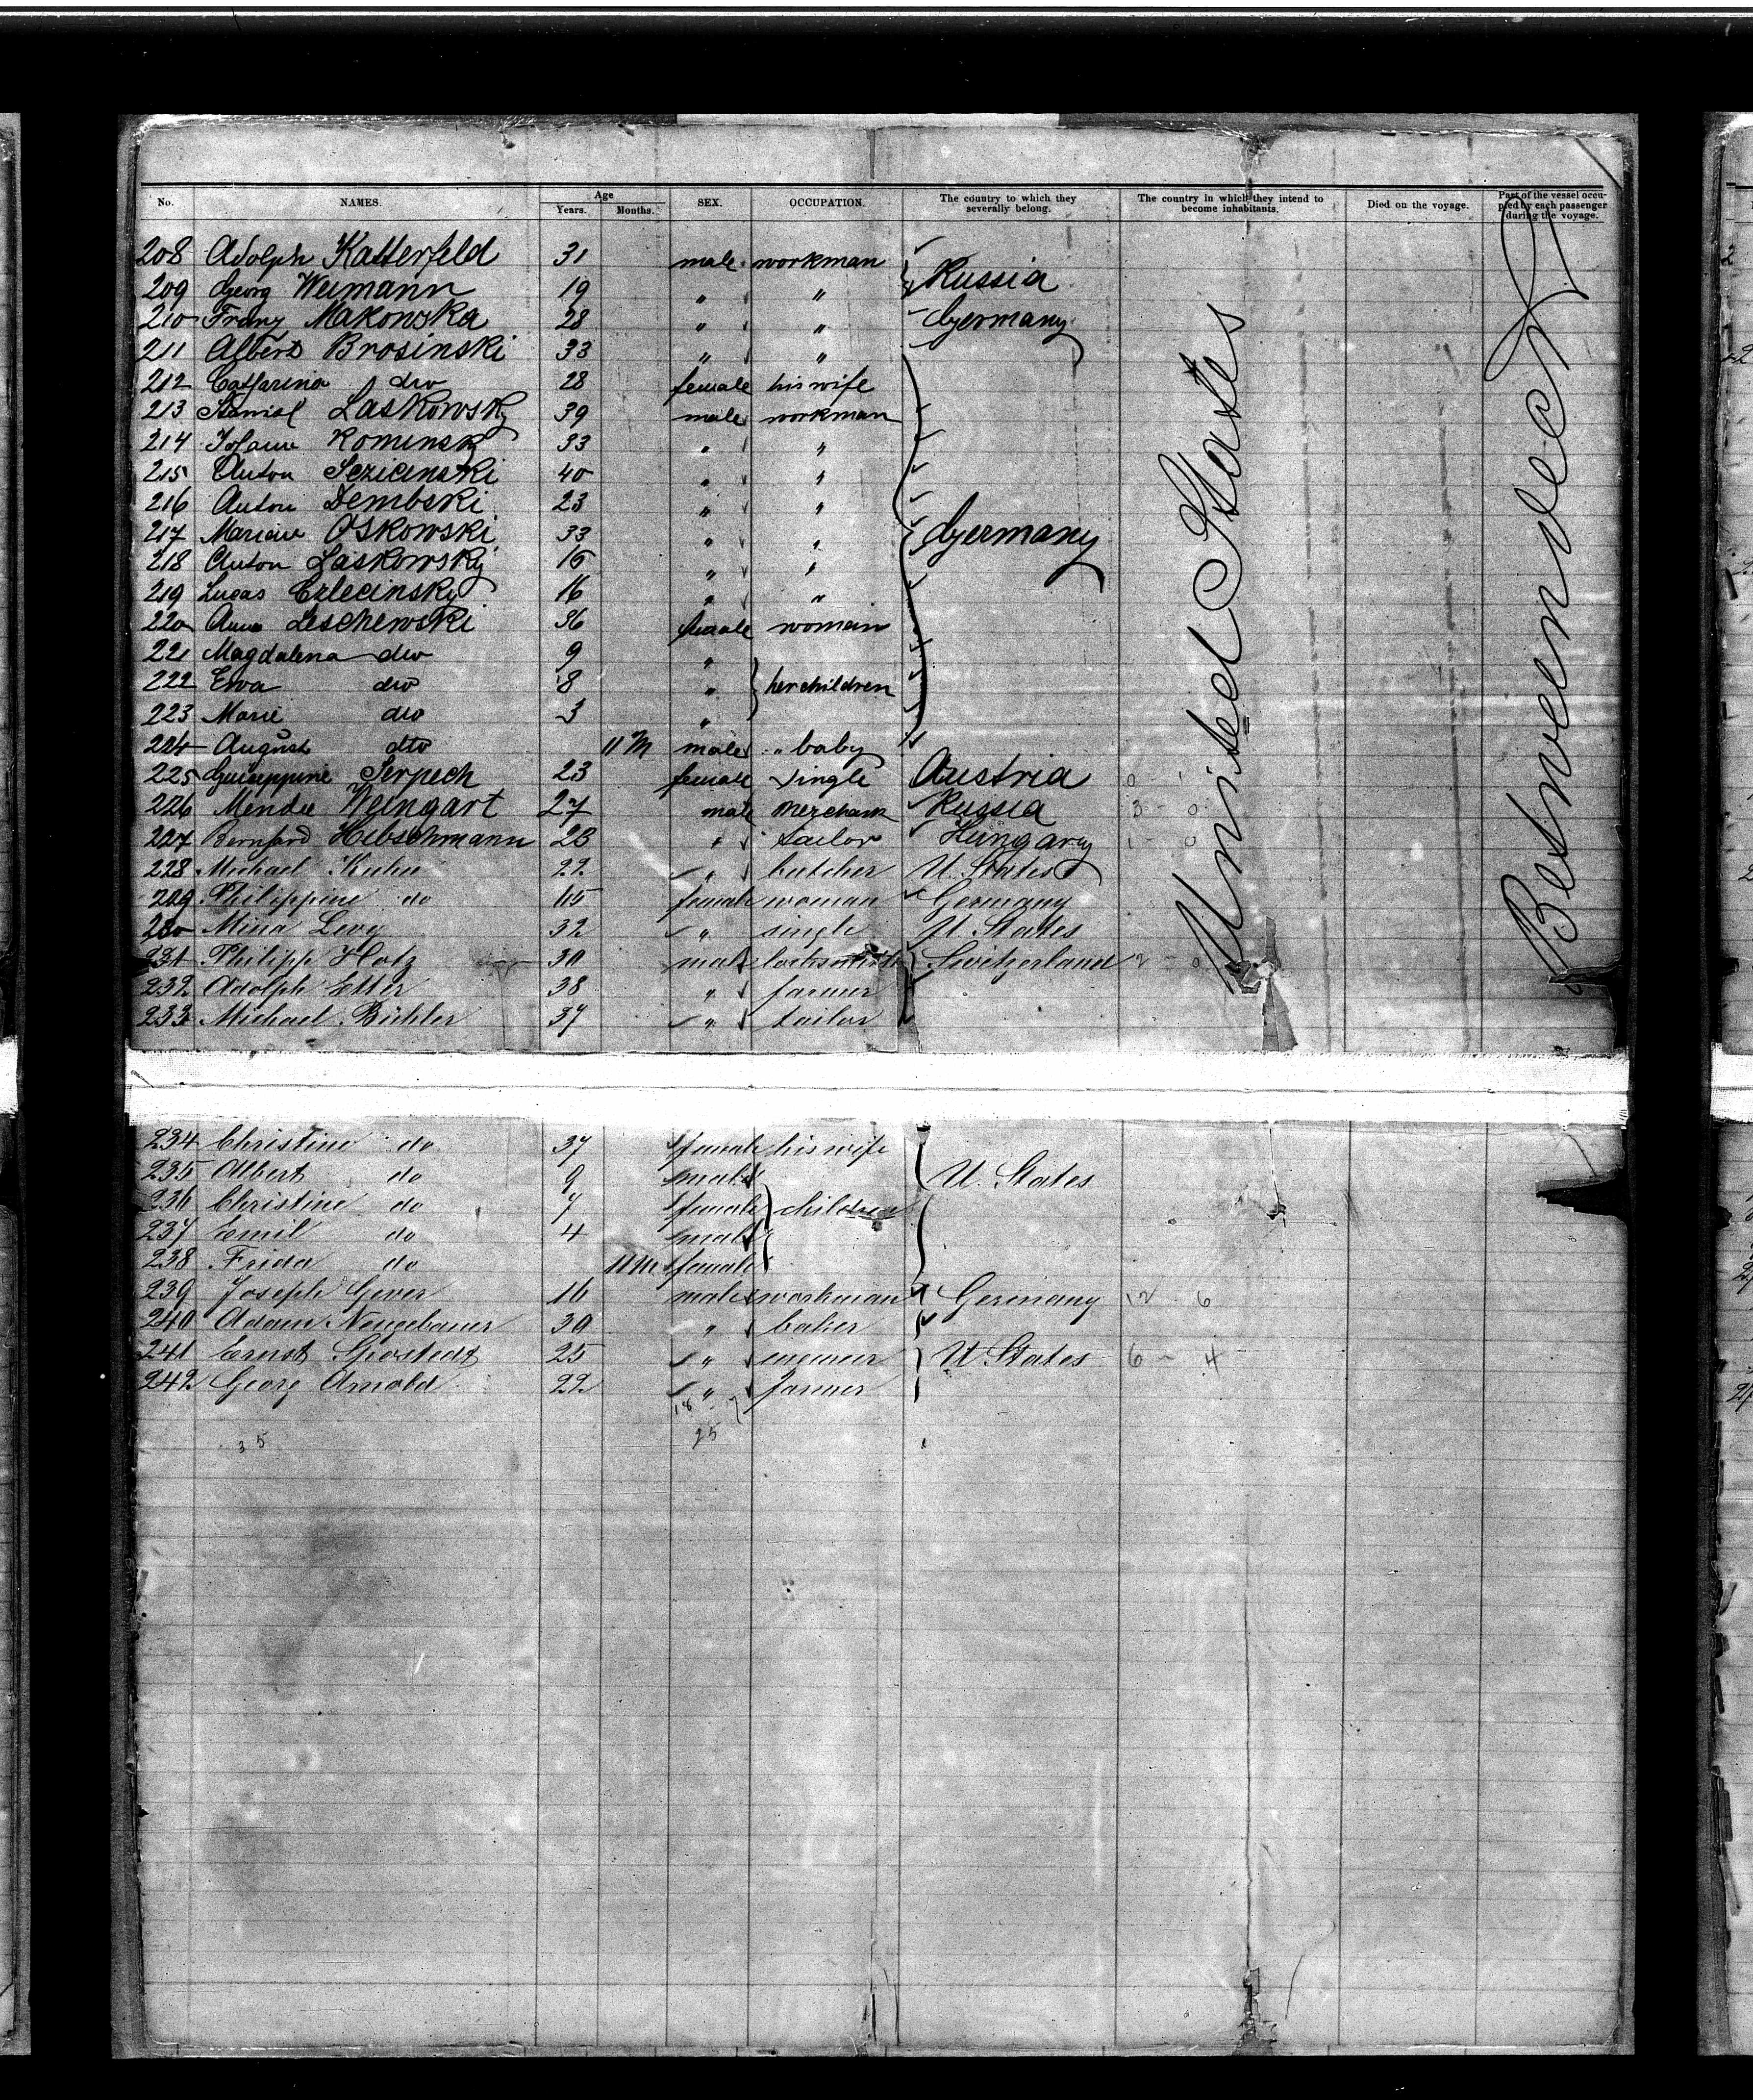 No. NAMES. Age Years. Months. SEX. OCCUPATION. The country to which they severally belong. The country in which they intend to become inhabitants. Died on the voyage. Part of the vessel occupied by each passenger during the voyage.
208 Adolph Katterfeld 31 male workman Russia
209 Georg Weimann 19 " "
210 Franz Makowska 28 " " Germany
211 Albert Brosinski 33 " "
212 Catharina dto 28 female his wife
213 Stanisl Laskowsky 39 male workman
214 Johann Kominsky 33 " "
215 Anton 40 " "
216 Anton Dembski 23 " "
217 Oskowski 33 " " Germany
218 Anton Laskowsky 16 " "
219 Lucas 16 " "
220 Anna Leschewski 36 female woman
221 Magdalena dto 9 "
222 Eva dto 8 " her children
223 Marie dto 3 "
224 August dto 11 M male " baby
225 Serpech 23 female single Austria
226 Mendel Weingart 27 male merchant Russia 3 - 0
227 Bernhard Hebschmann 23 " tailor Hungary 1 - 0
228 Michael Kuhn 22 " butcher U. States
229 Philippine do 65 female woman Germany
230 Mina Levy 32 " single U. States
231 Philipp Hotz 30 male locksmith Switzerland 2 - 0
232 Adolph Etter 38 " farmer
233 Michael Bühler 37 " tailor
United States
Betweendeck
234 Christine do 37 female his wife
235 Albert do 9 male U. States
236 Christine do 7 female children
237 Emil do 4 male
238 Frida do 11 M female
239 Joseph Gever 16 male workman Germany 12 - 6
240 Adam Neugebauer 30 " baker
241 Ernst 25 " U. States 6 - 4
242 Georg Arnold 22 " farmer
18 7
35 25